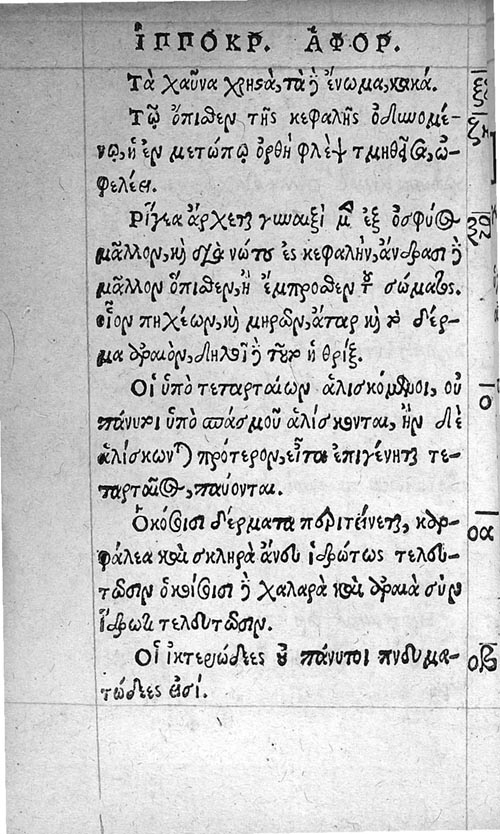 ἹΠΠΟΚΡ. ἈΦΟΡ.
Τὰ χαῦνα χρηστὰ, τὰ ἢ ἔνωμα, κακά. ξξ
Τῷ ὄπισθεν τῆς κεφαλῆς ὀδυνωμέ- ξη
νῳ, ἡ ἐν μετώπῳ ὀρθὴ φλὲψ τμηθεῖσα, ὠ-
φελέει.
Ῥίγεα ἄρχεται γυναιξὶ μὲν ἐξ ὀσφύος ξθ
μᾶλλον, καὶ διὰ νώτου ἐς κεφαλήν, ἀνδράσι ἢ
μᾶλλον ὄπισθεν, ἢ ἔμπροσθεν τοῦ σώματος.
οἷον πηχέων, καὶ μηρῶν, ἀτὰρ καὶ τὸ δέρ-
μα ἀραιὸν, δηλοῖ ἢ τοῦτο ἡ θρίξ.
Οἱ ὑπὸ τεταρταίων ἁλισκόμενοι, οὐ ο
πάνυτι ὑπὸ σπάσμοῦ ἁλίσκονται, ἢν δὲ
ἁλίσκωνται πρότερον, εἶτα ἐπιγένηται τε-
ταρταῖος, παύονται.
Ὁκόσοισι δέρματα περιτείνεται, καρ- οα
φάλεα καὶ σκληρὰ ἄνευ ἱδρῶτος τελευ-
τῶσιν ὁκοίσοισι ἢ χαλαρὰ καὶ ἀραιὰ σὺν
ἱδρῶτι τελευτῶσιν.
Οἱ ἰκτεριώδεες οὐ πάνυτοι πνευμα- οβ
τώδεες εἰσί.